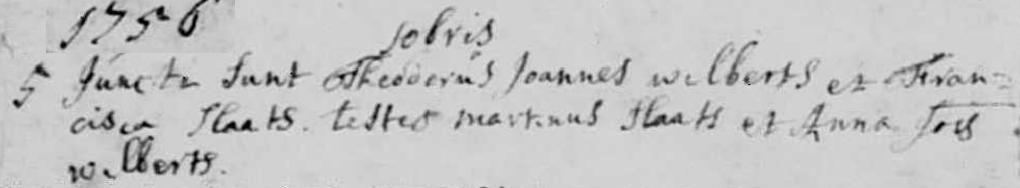 1756
jobris
5 Juncti Sunt Theodorus Joannes wilberts et Fran=
cisca Slaats. testes martinus Slaats et Anna
wilberts.